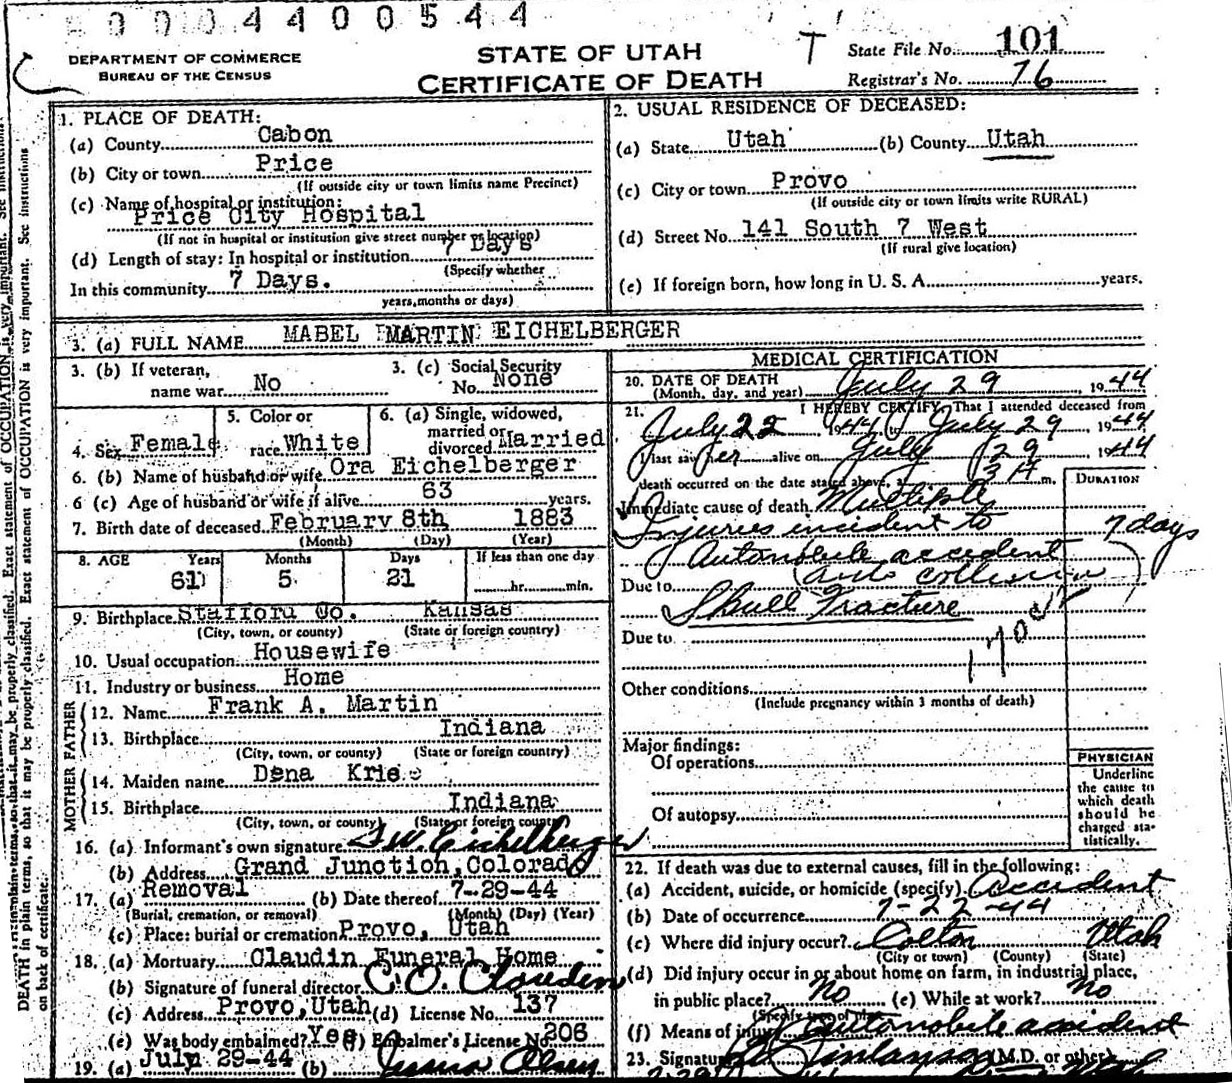 0004400544
DEPARTMENT OF COMMERCE
BUREAU OF THE CENSUS
STATE OF UTAH
CERTIFICATE OF DEATH
T
State File No. 101
Registrar's No. 76
1. PLACE OF DEATH:
(a) County Cabon
(b) City or town Price
(If outside city or town limits name Precinct)
(c) Name of hospital or institution:
Price City Hospital
(If not in hospital or institution give street number or location)
(d) Length of stay: In hospital or institution 7 Days
(Specify whether
In this community 7 Days.
years, months or days)
2. USUAL RESIDENCE OF DECEASED:
(a) State Utah (b) County Utah
(c) City or town Provo
(If outside city or town limits write RURAL)
(d) Street No. 141 South 7 West
(If rural give location)
(e) If foreign born, how long in U. S. A. years.
3. (a) FULL NAME MABEL MARTIN EICHELBERGER
3. (b) If veteran, name war No
3. (c) Social Security No. None
4. Sex Female
5. Color or race White
6. (a) Single, widowed, married or divorced Married
6. (b) Name of husband or wife Ora Eichelberger
6 (c) Age of husband or wife if alive 63 years.
7. Birth date of deceased February 8th 1883
(Month) (Day) (Year)
8. AGE Years Months Days If less than one day
61 5 21 hr. min.
9. Birthplace Stafford Co. Kansas
(City, town, or county) (State or foreign country)
10. Usual occupation Housewife
11. Industry or business Home
FATHER
12. Name Frank A. Martin
13. Birthplace Indiana
(City, town, or county) (State or foreign country)
MOTHER
14. Maiden name Dena
15. Birthplace Indiana
(City, town, or county) (State or foreign country)
16. (a) Informant's own signature Eichelberger
(b) Address Grand Junction, Colorado
17. (a) Removal (b) Date thereof 7-29-44
(Burial, cremation, or removal) (Month) (Day) (Year)
(c) Place: burial or cremation Provo, Utah
18. (a) Mortuary Claudin Funeral Home
(b) Signature of funeral director C. O. Claudin
(c) Address Provo, Utah (d) License No. 137
(e) Was body embalmed? Yes (f) Embalmer's License No. 206
19. (a) July 29-44 (b) Olsen
MEDICAL CERTIFICATION
20. DATE OF DEATH July 29, 1944
(Month, day, and year)
21. I HEREBY CERTIFY, That I attended deceased from
July 22 1944 to July 29 1944
I last saw her alive on July 29 1944
death occurred on the date stated above, at 3 A m.
DURATION
Immediate cause of death Multiple
Injuries incident to
Automobile accident
7 days
(auto collision
Due to
Skull Fracture
Due to
170
Other conditions
(Include pregnancy within 3 months of death)
Major findings:
Of operations
Of autopsy
PHYSICIAN
Underline the cause to which death should be charged statistically.
22. If death was due to external causes, fill in the following:
(a) Accident, suicide, or homicide (specify) Accident
(b) Date of occurrence 7-22-44
(c) Where did injury occur? Colton Utah
(City or town) (County) (State)
(d) Did injury occur in or about home on farm, in industrial place,
in public place? No (e) While at work? No
(Specify type of place)
(f) Means of injury Automobile accident
23. Signature (M.D. or other)
DEATH in plain terms, so that it may be properly classified. Exact statement of OCCUPATION is very important. See instructions
on back of certificate.